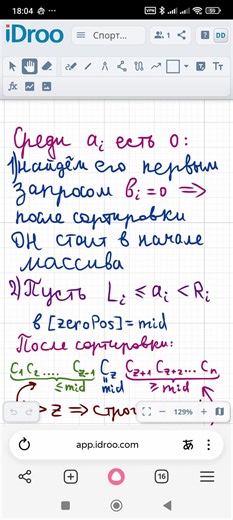 18:04
82
iDroo
Спорт...
1
?
DD
Tt
fx
Среди aᵢ есть 0:
1) Найдём его первым
запросом bᵢ = 0 ⇒
после сортировки
он стоит в начале
массива
2) Пусть Lᵢ ≤ aᵢ < Rᵢ
b [zeroPos] = mid
После сортировки:
C₁ C₂ .... C_z-1 C_z C_z+1 C_z+2 ... Cₙ
≤ mid = mid ≥ mid
> z ⇒ строг
129%
app.idroo.com
あ
16